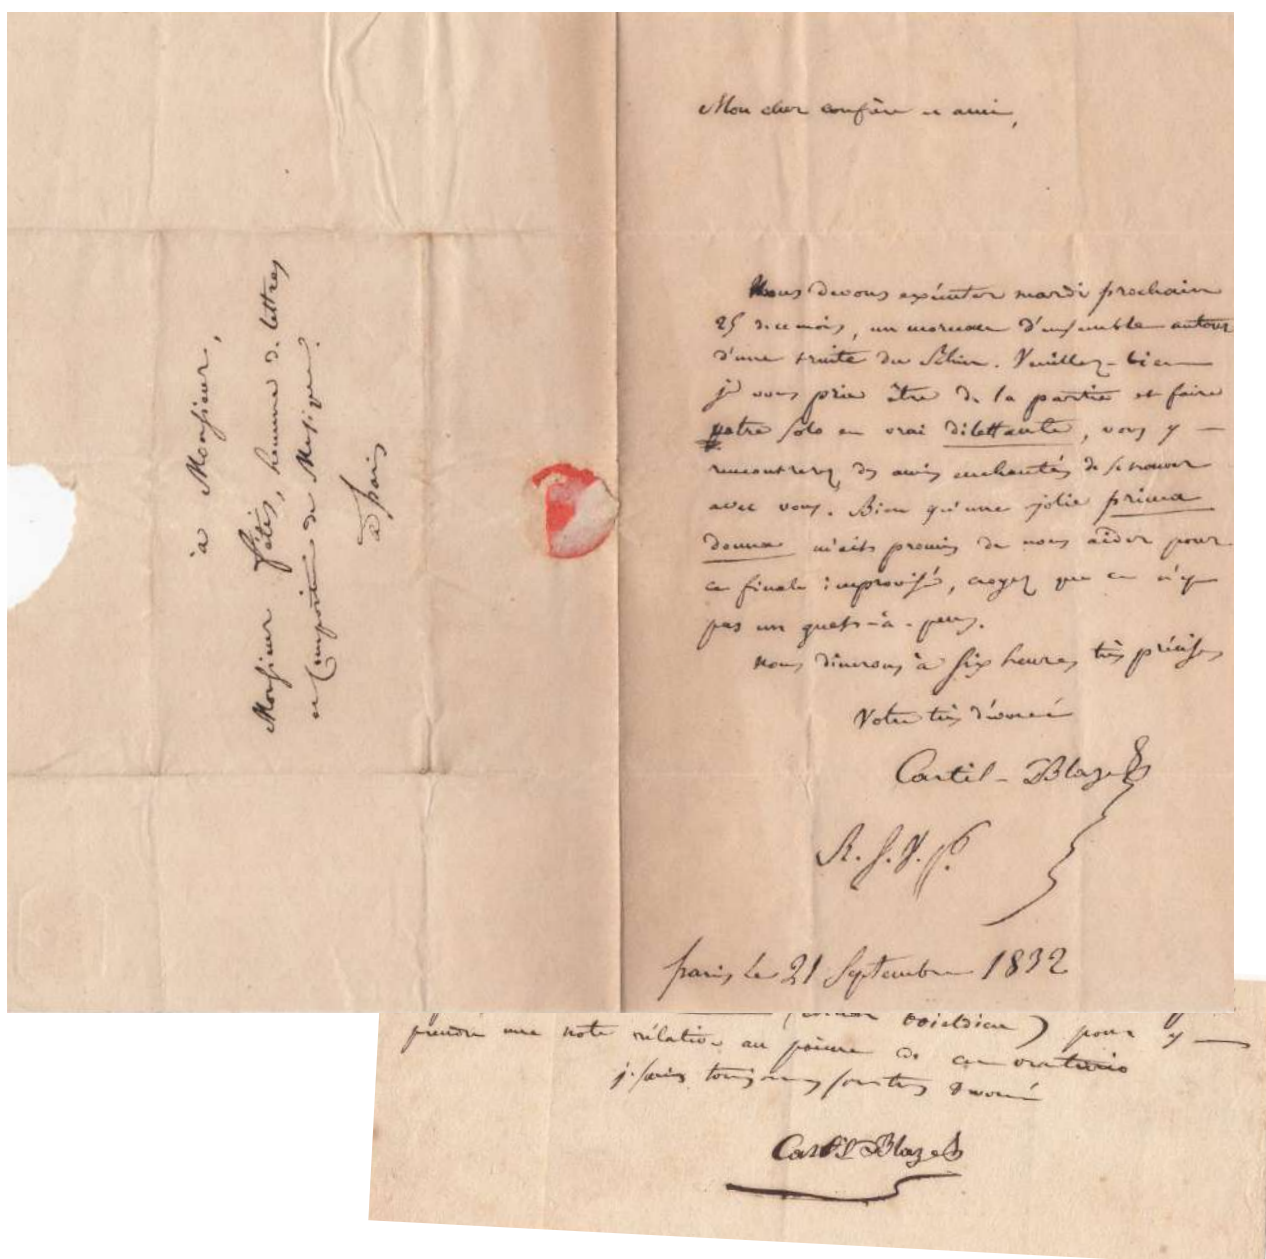 à Monsieur,
Monsieur fétis, homme de lettres
et Compositeur de Musique.
à paris
Mon cher confrère et ami,
Nous devons exécuter mardi prochain
25 de ce mois, un morceau d'ensemble autour
d'une truite du Rhin. Veuillez-bien
je vous prie être de la partie et faire
votre solo en vrai dilettante, vous y —
rencontrerez des amis enchantés de se trouver
avec vous. Bien qu'une jolie prima
donna m'aits promis de nous aider pour
ce finale improvisé, croyez que ce n'est
pas un guets-à-pens.
nous dînerons à six heures très précises
Votre très dévoué
Castil-Blaze
R. S. V. P.
paris le 21 Septembre 1832
boieldieu) pour y —
prendre une note rélative au poème de cet oratorio
je suis toujours votre dévoué
Castil Blaze